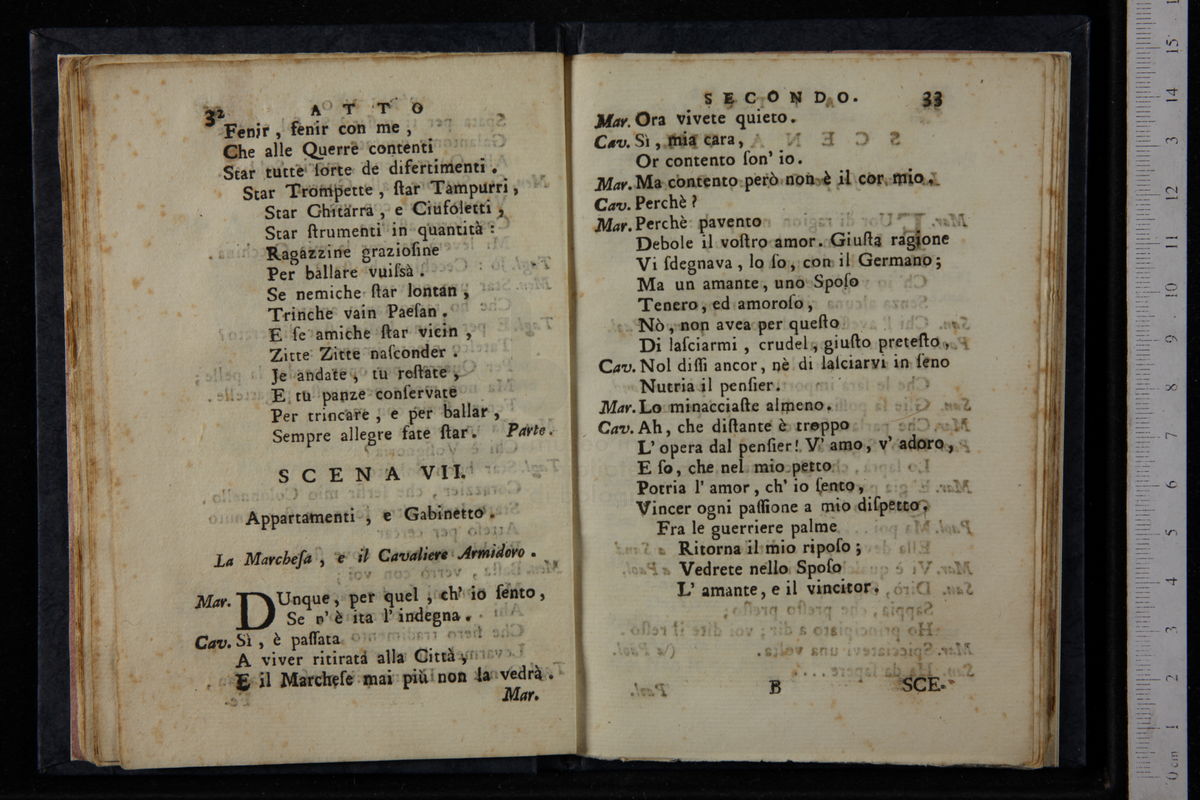 32 ATTO
Fenir, fenir con me,
Che alle Querre contenti
Star tutte ſorte de difertimenti.
Star Trompette, ſtar Tampurri,
Star Ghitarra, e Ciufoletti,
Star ſtrumenti in quantità:
Ragazzine grazioſine
Per ballare vuiſsà.
Se nemiche ſtar lontan,
Trinche vain Paeſan.
E ſe amiche ſtar vicin,
Zitte Zitte naſconder.
Je andate, tu reſtate,
E tu panze conſervate
Per trincare, e per ballar,
Sempre allegre fate ſtar. Parte.
SCENA VII.
Appartamenti, e Gabinetto.
La Marcheſa, e il Cavaliere Armidoro.
Mar. DUnque, per quel, ch' io ſento,
Se n' è ita l' indegna.
Cav. Sì, è paſſata
A viver ritirata alla Città,
E il Marcheſe mai più non la vedrà.
Mar.
SECONDO. 33
Mar. Ora vivete quieto.
Cav. Sì, mia cara,
Or contento ſon' io.
Mar. Ma contento però non è il cor mio.
Cav. Perchè?
Mar. Perchè pavento
Debole il voſtro amor. Giuſta ragione
Vi ſdegnava, lo ſo, con il Germano;
Ma un amante, uno Spoſo
Tenero, ed amoroſo,
Nò, non avea per queſto
Di laſciarmi, crudel, giuſto preteſto,
Cav. Nol diſſi ancor, nè di laſciarvi in ſeno
Nutria il penſier.
Mar. Lo minacciaſte almeno.
Cav. Ah, che diſtante è troppo
L' opera dal penſier! V' amo, v' adoro,
E ſo, che nel mio petto
Potria l' amor, ch' io ſento,
Vincer ogni paſſione a mio diſpetto.
Fra le guerriere palme
Ritorna il mio ripoſo;
Vedrete nello Spoſo
L' amante, e il vincitor.
B SCE-
0 cm 1 2 3 4 5 6 7 8 9 10 11 12 13 14 15